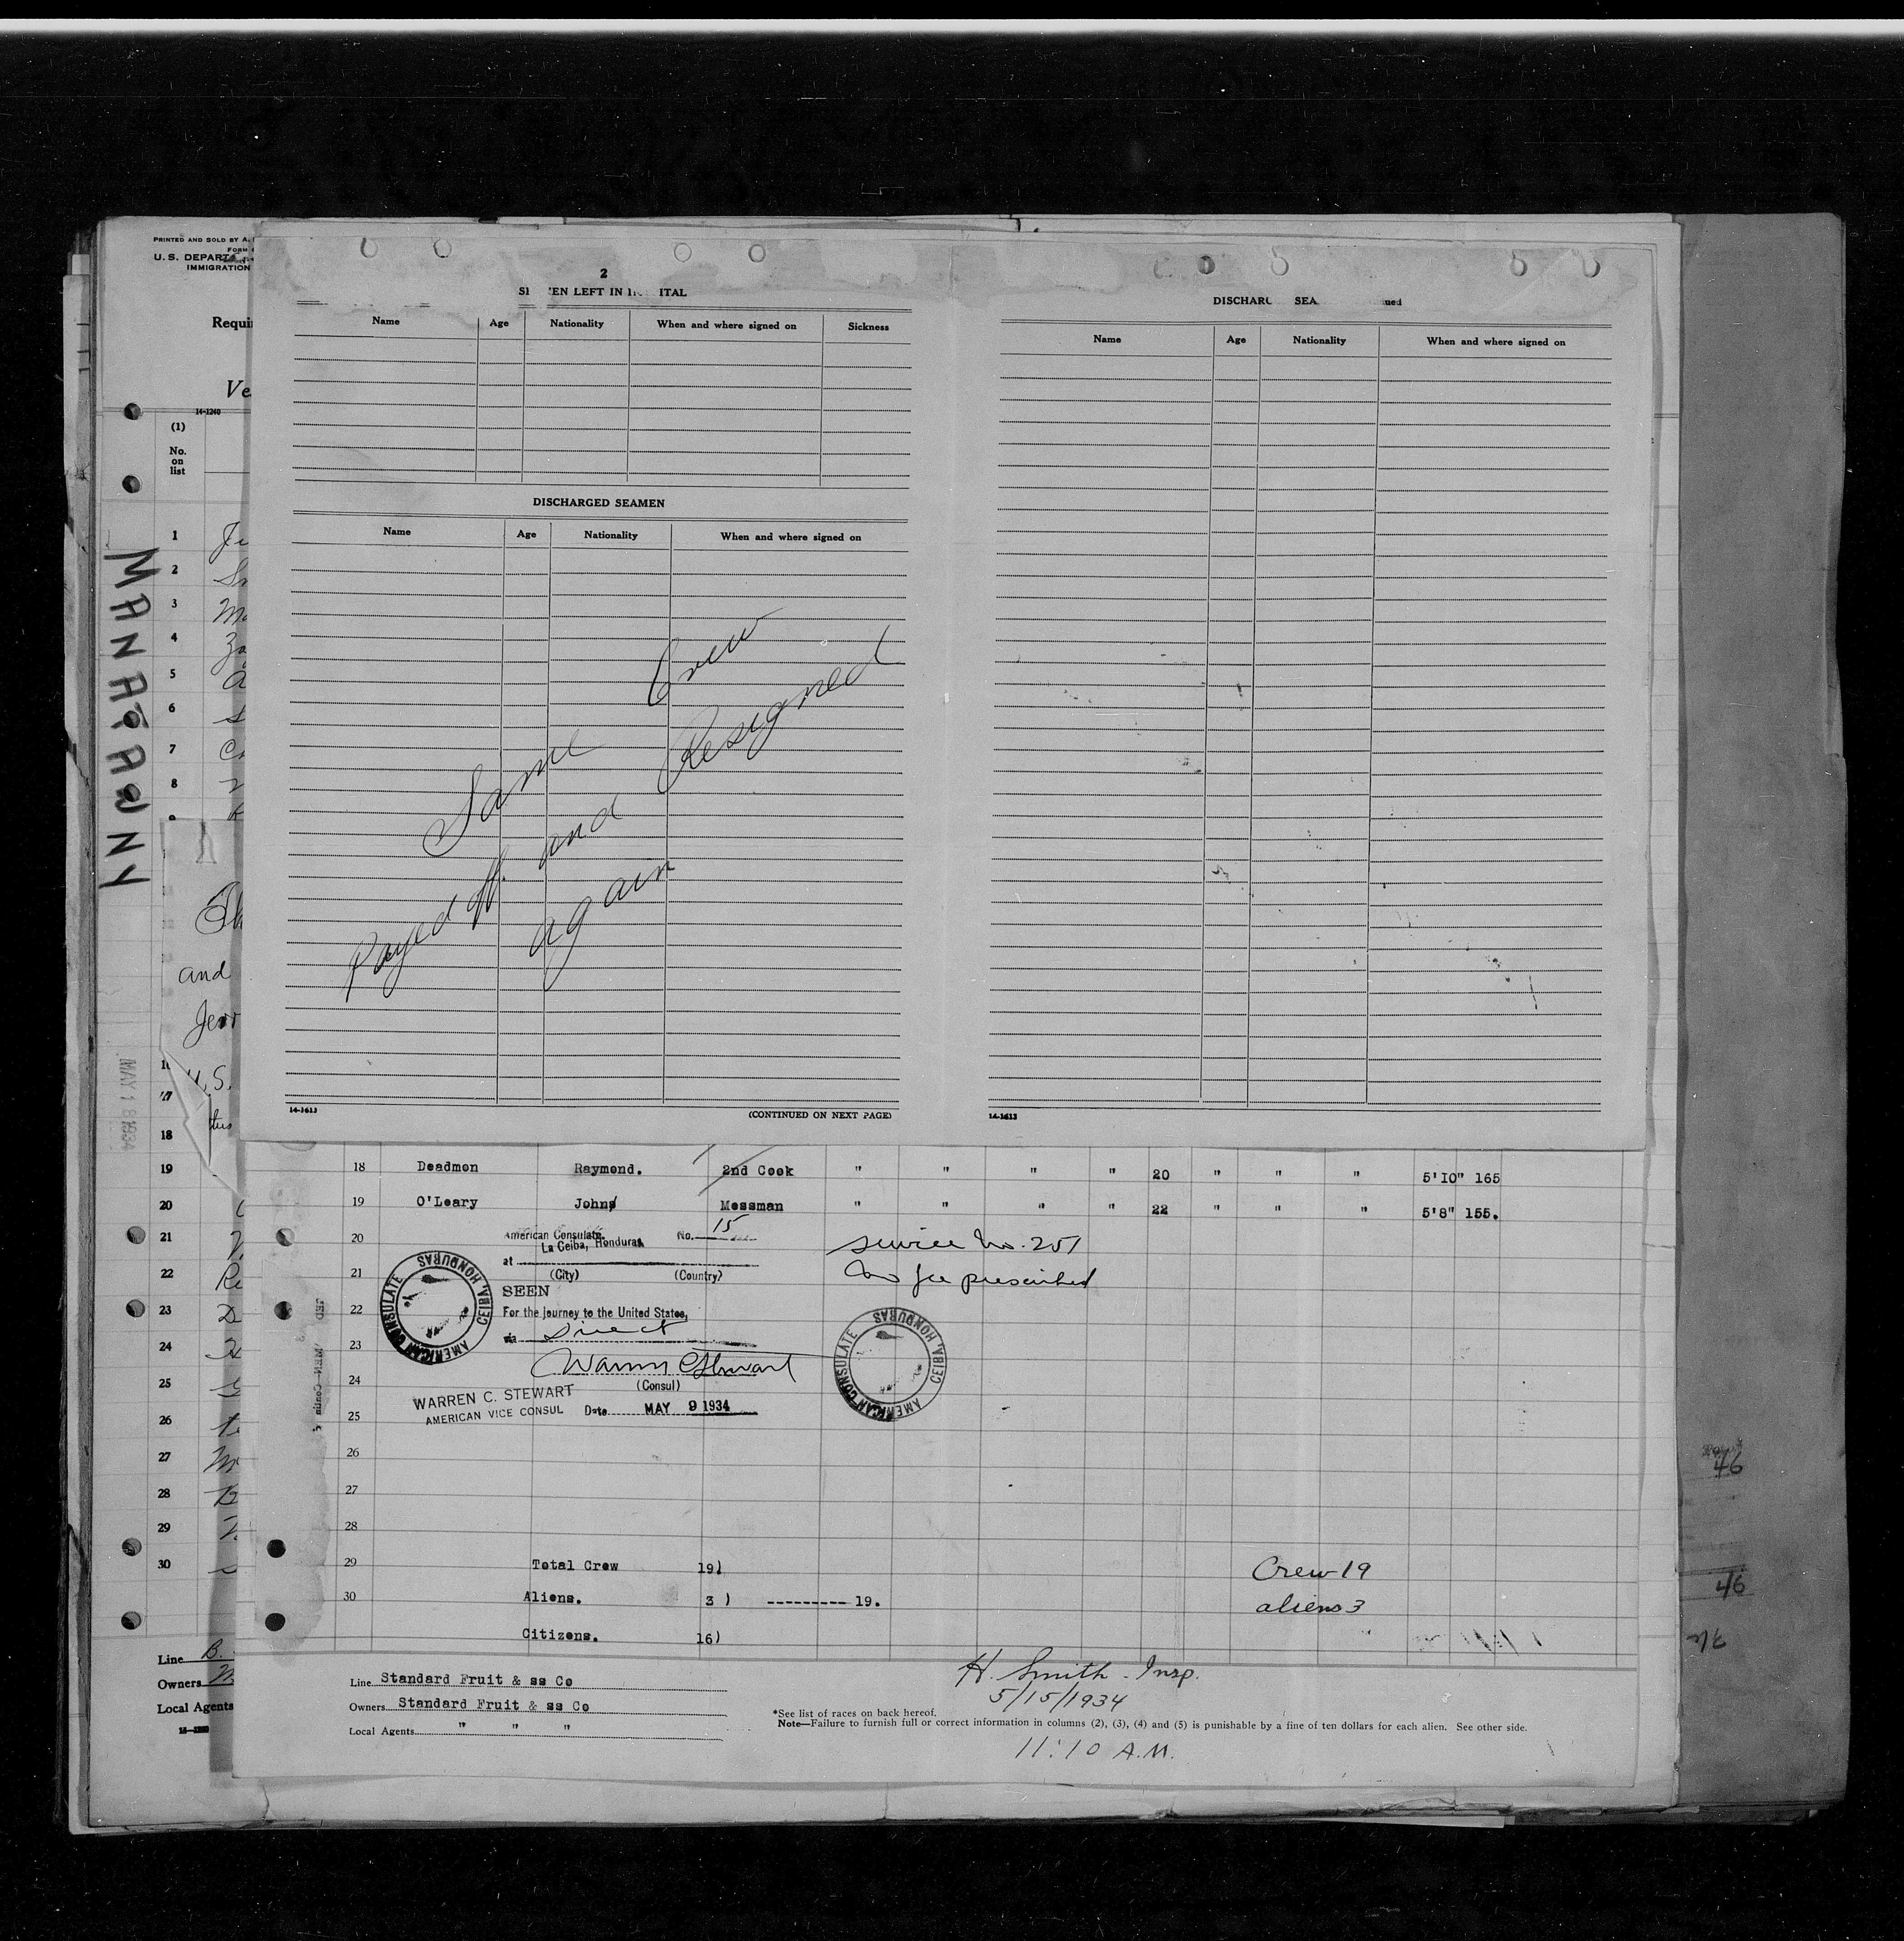 PRINTED AND SOLD BY A.
FORM
U. S. DEPART
IMMIGRATION
Requi
Ve
14-1240
(1)
No.
on
list
MANATAWNY
MAY 18 1934
1
2
3
4
5
6
7
8
and
U.S.
this
18
19
20
21
22
23
24
25
26
27
28
29
30
Line B.
Owners
Local Agents
2
EN LEFT IN H ITAL
Name Age Nationality When and where signed on Sickness
DISCHARGED SEAMEN
Name Age Nationality When and where signed on
Same Crew
Payed off and Resigned
again
14-1613 (CONTINUED ON NEXT PAGE)
DISCHARG SEA ued
Name Age Nationality When and where signed on
14-1613
18 Deadmon Raymond. 2nd Cook " " " " 20 " " " 5'10" 165
19 O'Leary John Messman " " " " 22 " " " 5'8" 155.
20 American Consulate. No. 15
La Ceiba, Honduras
at
21 (City) (Country)
SEEN
22 For the journey to the United States,
via Direct
23 Warren C Stewart
24 (Consul)
WARREN C. STEWART
AMERICAN VICE CONSUL Date MAY 9 1934
25
AMERICAN CONSULATE CEIBA, HONDURAS
service No. 251
No fee prescribed
AMERICAN CONSULATE CEIBA, HONDURAS
26
27
28
29 Total Crew 19) Crew 19
30 Aliens. 3 ) --------- 19. aliens 3
Citizens. 16)
Line Standard Fruit & ss Co
Owners Standard Fruit & ss Co
Local Agents " " "
H. Smith - Insp.
5/15/1934
*See list of races on back hereof.
Note—Failure to furnish full or correct information in columns (2), (3), (4) and (5) is punishable by a fine of ten dollars for each alien. See other side.
11:10 A.M.
46
46